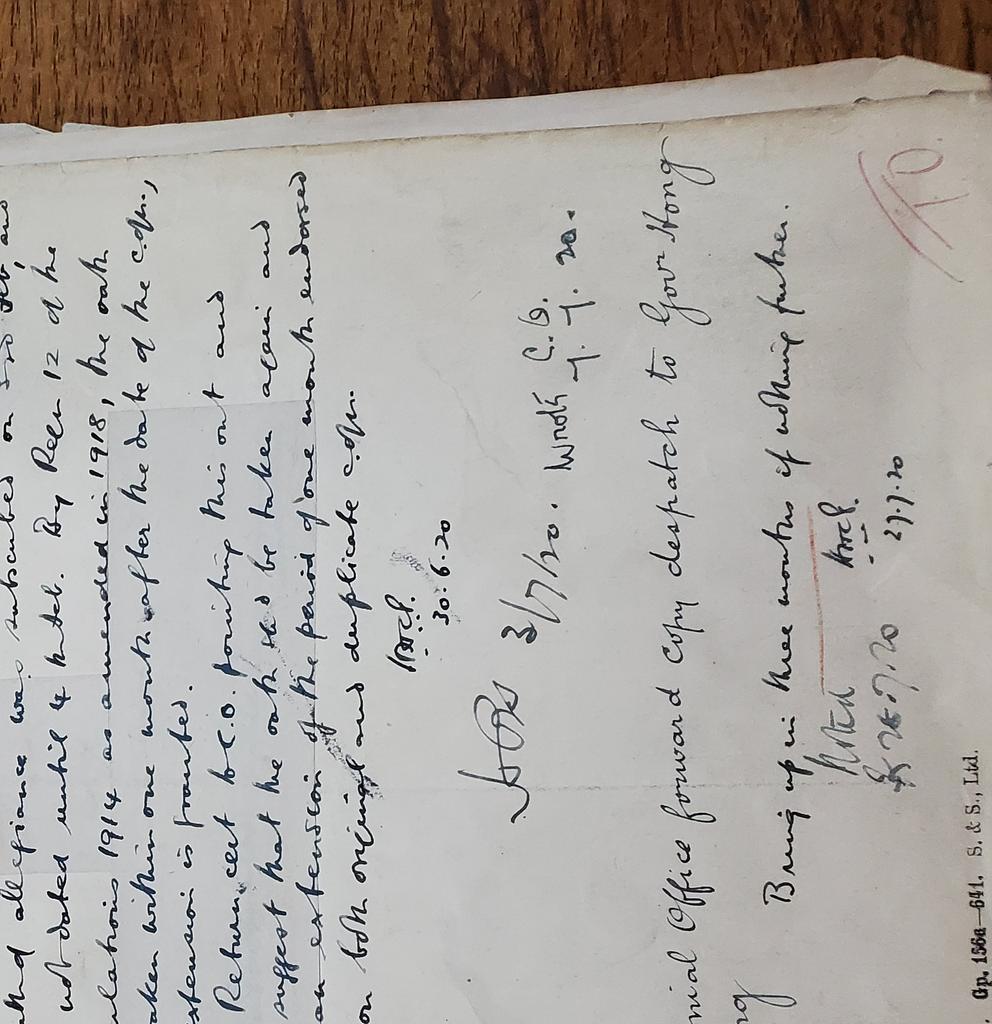 allegiance was subscribed on and
not dated until 4 Indeb. By Regn 12 of the
ulations 1914 as amended in 1918, the oath
aken within one month after the date of the
xtension is granted.
Return cert to C.O. pointing this out and
suggest that the oath shd be taken again and
an extension of the period of one month endorsed
on both original and duplicate
30.6.20
3/7/20. Wrote C.O.
7.7.20.
nial Office forward copy despatch to Govr Hong
ng
Bring up in three months if nothing further.
Noted
27.7.20
Gp. 156a—641. S. & S., Ltd.